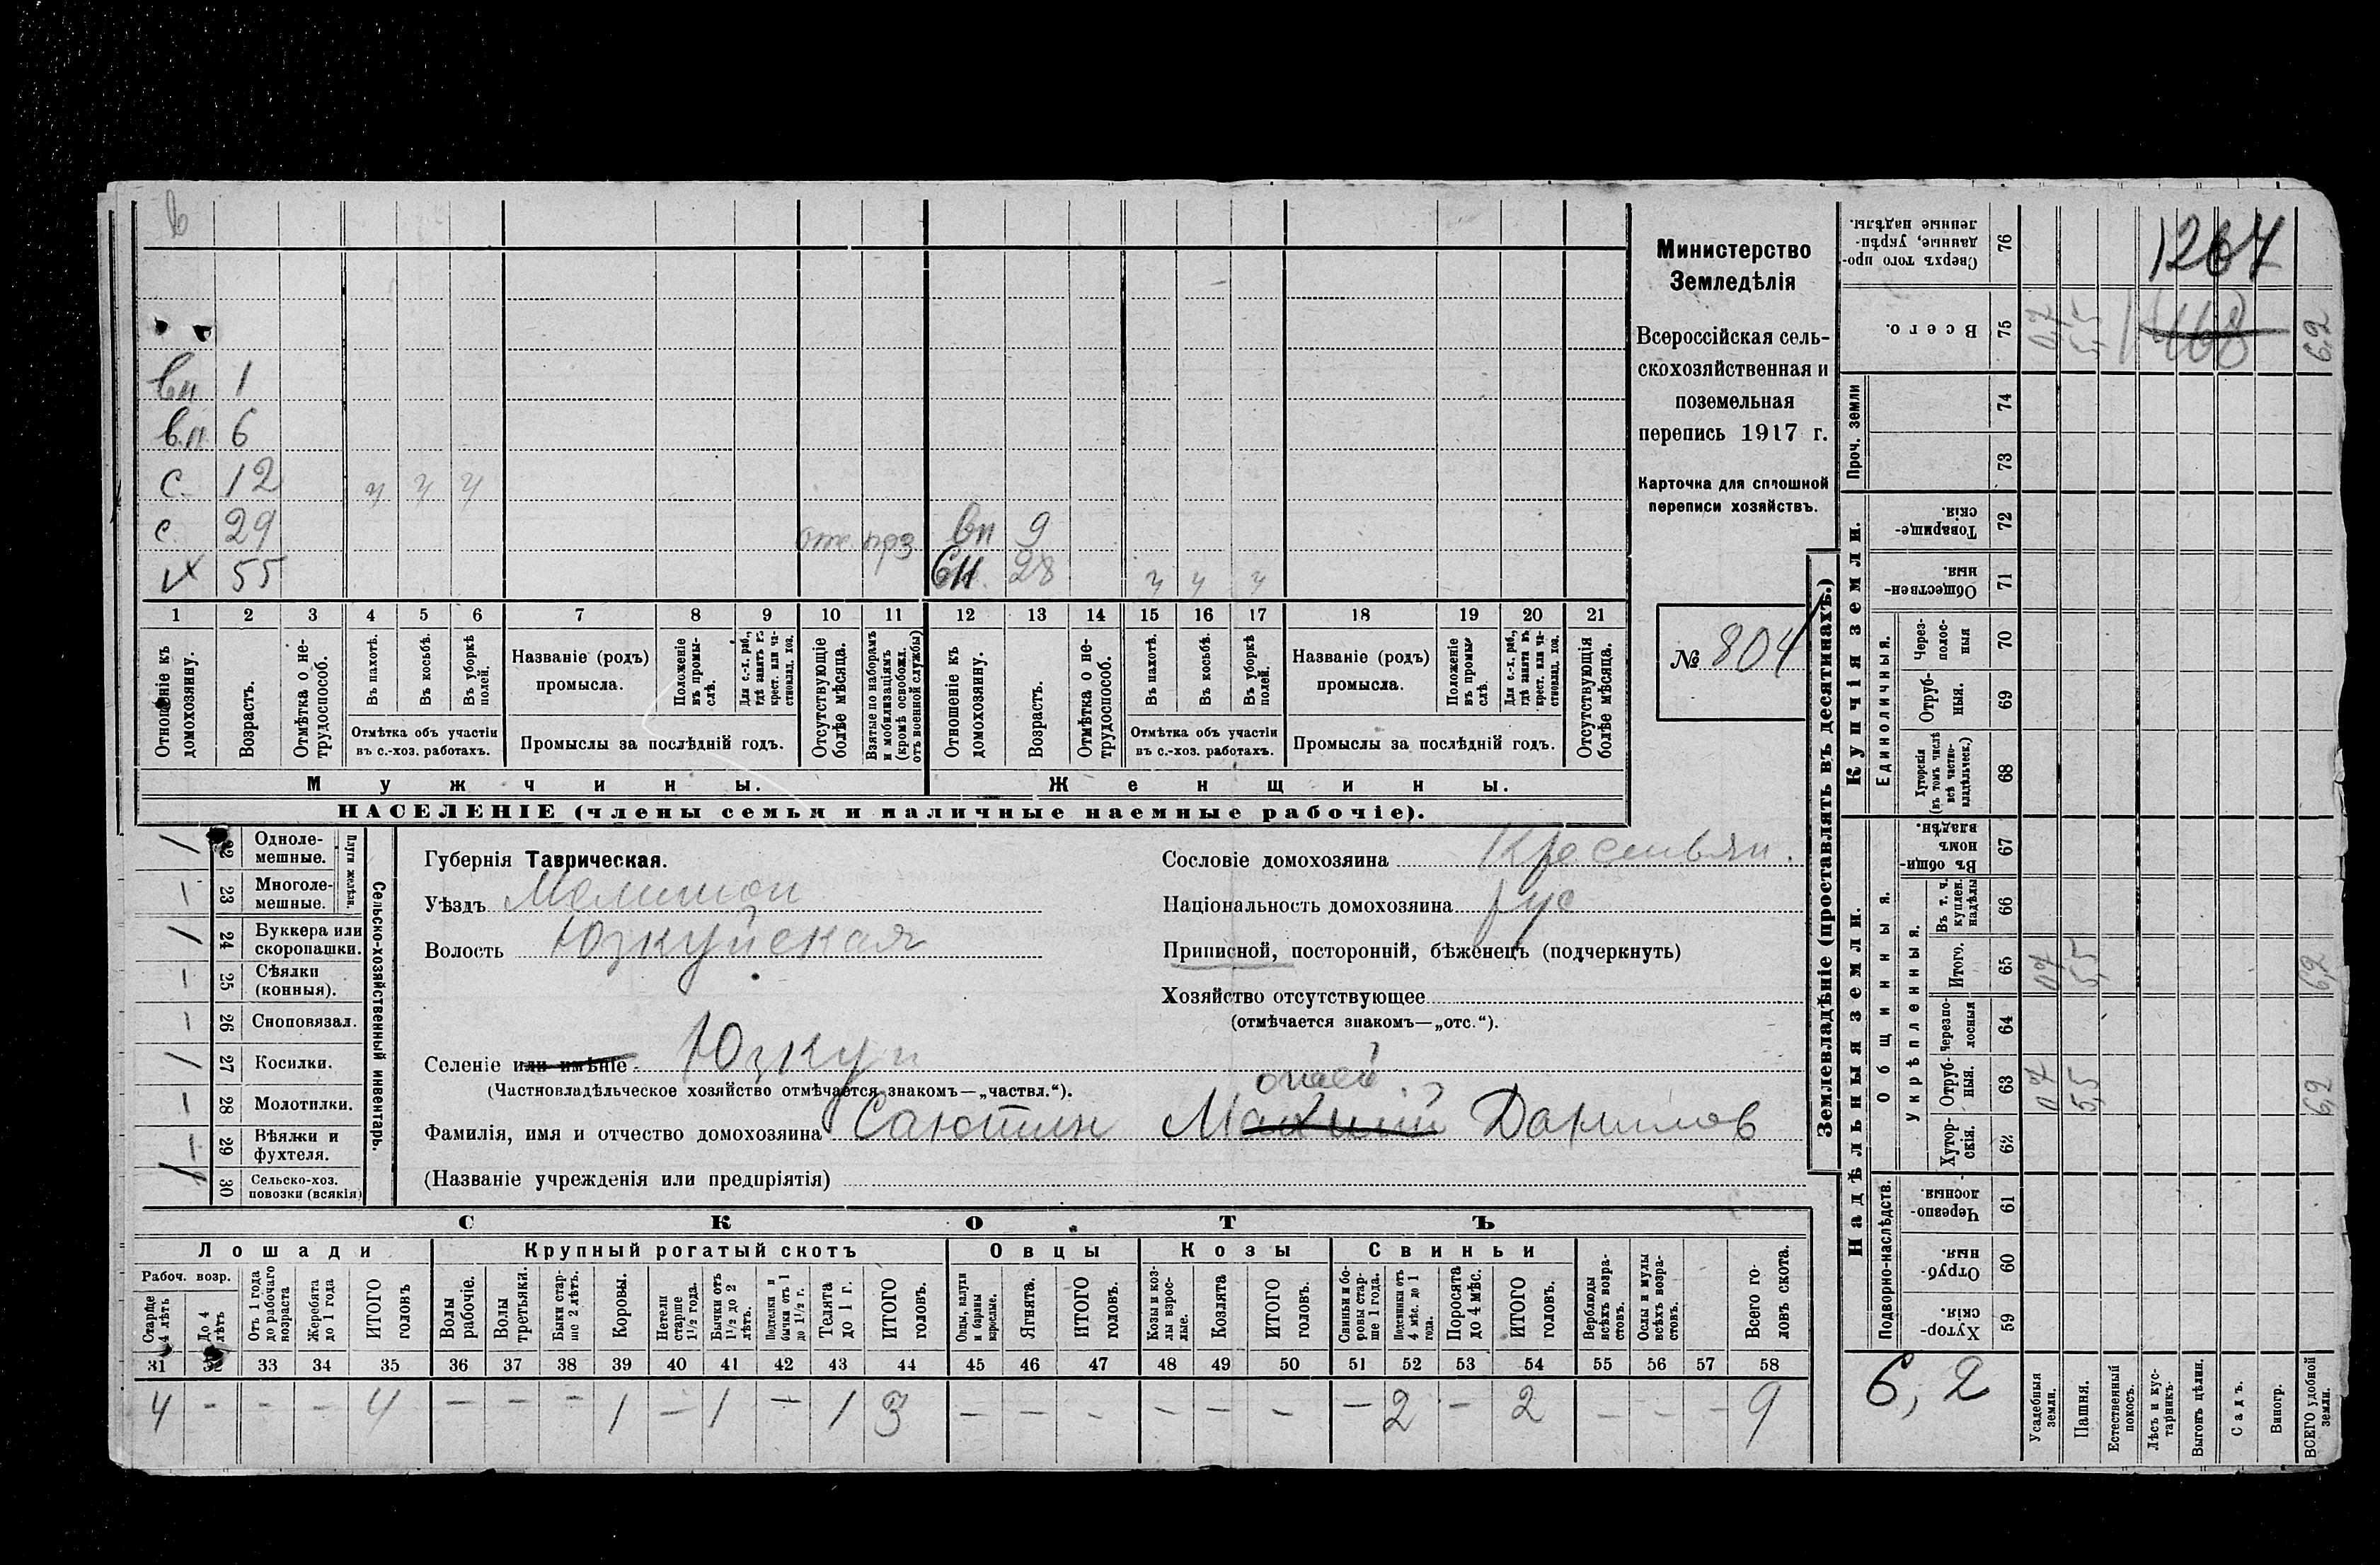 Министерство
Земледѣлія
Всероссійская сель-
скохозяйственная и
поземельная
перепись 1917 г.
Карточка для сплошной
переписи хозяйствъ.
№ 804
1264
468
в
вн 1
вн 6
с. 12 ч ч ч
с. 29 отс. прз вн 9
х 55 сн. 28 ч ч ч
1 2 3 4 5 6 7 8 9 10 11 12 13 14 15 16 17 18 19 20 21
Отношеніе къ домохозяину.
Возрастъ.
Отмѣтка о не-трудоспособ.
Въ пахотѣ.
Въ косьбѣ.
Въ уборкѣ полей.
Отмѣтка объ участіи
въ с.-хоз. работахъ.
Названіе (родъ)
промысла.
Положеніе въ промы-слѣ.
Для с.-х. раб., гдѣ занятъ въ крест. или ча-стновлад. хоз.
Промыслы за послѣдній годъ.
Отсутствующіе болѣе мѣсяца.
Взятые по наборамъ и мобилизаціямъ (кромѣ освобожд. отъ военной службы)
Отношеніе къ домохозяину.
Возрастъ.
Отмѣтка о не-трудоспособ.
Въ пахотѣ.
Въ косьбѣ.
Въ уборкѣ полей.
Отмѣтка объ участіи
въ с.-хоз. работахъ.
Названіе (родъ)
промысла.
Положеніе въ промы-слѣ.
Для с.-х. раб., гдѣ занята въ крест. или ча-стновлад. хоз.
Промыслы за послѣдній годъ.
Отсутствующія болѣе мѣсяца.
Мужчины.
Женщины.
НАСЕЛЕНІЕ (члены семьи и наличные наемные рабочіе).
Сельско-хозяйственный инвентарь.
Плуги желѣзн.
22 Одноле-мешные.
23 Многоле-мешные.
24 Буккера или скоропашки.
25 Сѣялки (конныя).
26 Сноповязал.
27 Косилки.
28 Молотилки.
29 Вѣялки и фухтеля.
30 Сельско-хоз. повозки (всякія)
Губернія Таврическая.
Уѣздъ Мелитоп
Волость Юзкуйская
Селеніе или имѣніе Юзкуи
(Частновладѣльческое хозяйство отмѣчается знакомъ—„частвл.“).
Фамилія, имя и отчество домохозяина Саютин Данилов
(Названіе учрежденія или предпріятія)
Сословіе домохозяина Крестьян.
Національность домохозяина рус
Приписной, посторонній, бѣженецъ (подчеркнуть)
Хозяйство отсутствующее
(отмѣчается знакомъ—„отс.“).
СКОТЪ
Лошади Крупный рогатый скотъ Овцы Козы Свиньи
Рабоч. возр.
Старше 4 лѣтъ
До 4 лѣтъ
Отъ 1 года до рабочаго возраста
Жеребята до 1 года
ИТОГО головъ
Волы рабочіе.
Волы третьяки.
Быки стар-ше 2 лѣтъ.
Коровы.
Нетели старше 1½ года.
Бычки отъ 1½ до 2 лѣтъ.
Подтелки и бычки отъ 1 до 1½ г.
Телята до 1 г.
ИТОГО головъ.
Овцы, валухи и бараны взрослые.
Ягнята.
ИТОГО головъ.
Козы и коз-лы взрос-лые.
Козлята
ИТОГО головъ.
Свиньи и бо-ровы стар-ше 1 года.
Подсвинки отъ 4 мѣс. до 1 года.
Поросята до 4 мѣс.
ИТОГО головъ.
Верблюды всѣхъ возра-стовъ.
Ослы и мулы всѣхъ возра-стовъ.
Всего го-ловъ скота.
31 32 33 34 35 36 37 38 39 40 41 42 43 44 45 46 47 48 49 50 51 52 53 54 55 56 57 58
4 - - - 4 - - - 1 - 1 - 1 3 - - - - - - - 2 - 2 - - - 9
Землевладѣніе (проставлять въ десятинахъ.)
Купчія земли.
Надѣльныя земли.
Сверхъ того про-данные, укрѣп-ленные надѣлы. 76
Всего. 75 0,7 5,5 6,2
Проч. земли
74
73
Товарище-скія. 72
Обществен-ныя. 71
Единоличныя.
Через-полос-ныя 70
Отруб-ныя. 69
Хуторскія (въ томъ числѣ всѣ частно-владѣльческ.) 68
Общинныя.
Въ общин-номъ владѣн. 67
Укрѣпленныя.
Въ т. ч. куплен. надѣлы 66
Итого. 65 0,7 5,5 6,2
Черезпо-лосныя 64
Отруб-ныя. 63 0,7 5,5 6,2
Хутор-скія. 62
Подворно-наслѣдств.
Черезпо-лосныя. 61
Отруб-ныя. 60
Хутор-скія. 59
6,2
Усадебныя земли.
Пашня.
Естественный покосъ.
Лѣсъ и кус-тарникъ.
Выгонъ цѣлин.
Садъ.
Виногр.
ВСЕГО удобной земли.